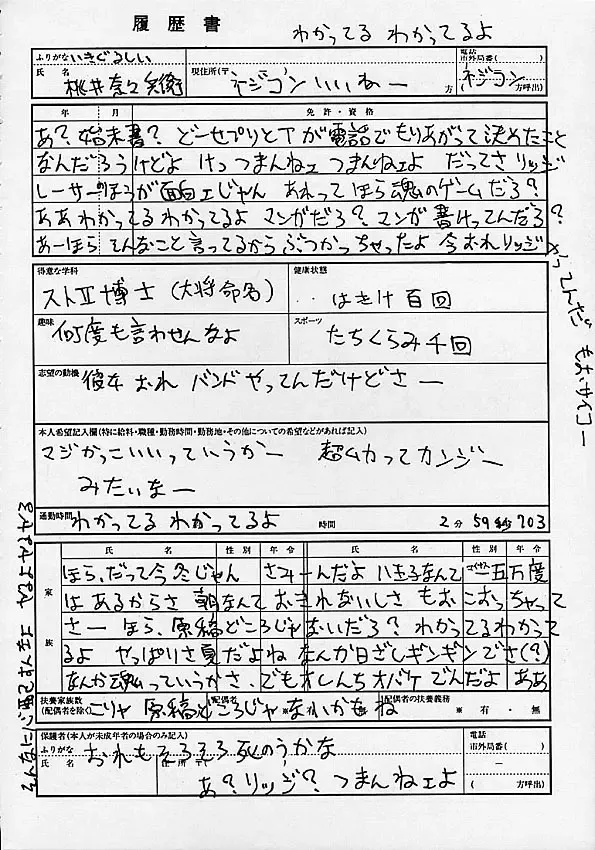 履歴書
わかってる わかってるよ
ふりがな いきぐるしい
氏名 桃井奈々
現住所(〒 ) ネジコン いいねー 方
電話 市外局番( ) ネジコン (方呼出)
年 月 免許・資格
あ? 始末書? どーせプリとTが電話でもりあがって決めたこと
なんだろうけどよ けっ つまんねェ つまんねェよ だってさ リッジ
レーサーのほうが面白ェじゃん あれって ほら魂のゲームだろ?
ああわかってる わかってるよ マンガだろ? マンガ 書けってんだろ?
あーほら てんなこと言ってるから ぶつかっちゃったよ 今おれリッジ
やってんだ もおサイコー
得意な学科
ストⅡ博士 (大将命名)
健康状態
‥はきけ百回
趣味
何度も言わせんなよ
スポーツ
たちくらみ千回
志望の動機
彼女 おれ バンドやってんだけどさー
本人希望記入欄(特に給料・職種・勤務時間・勤務地・その他についての希望などがあれば記入)
マジかっこいいっていうかー 超ムカってカンジー
みたいなー
通勤時間 わかってる わかってるよ 時間 2分 59秒703
家族
氏名 性別 年令 氏名 性別 年令
ほら、だって今冬じゃん さみーんだよ 八王子なんて 一五万度
はあるからさ 朝なんて おきれないしさ もおこおっちゃって
さー ほら、原稿どころじゃないだろ? わかってるわかって
るよ やっぱりさ夏だよね なんか日ざしギンギンでさ(?)
なんか魂っていうかさ、でもオレんちオバケでんだよ ああ
扶養家族数(配偶者を除く) 配偶者 配偶者の扶養義務
こりゃ 原稿どころじゃないかもね ※ 有・無
保護者(本人が未成年者の場合のみ記入)
ふりがな おれもそろそろ死のうかな
氏名 住所(〒 )
あ? リッジ? つまんねェよ
電話 市外局番( ) ー (方呼出)